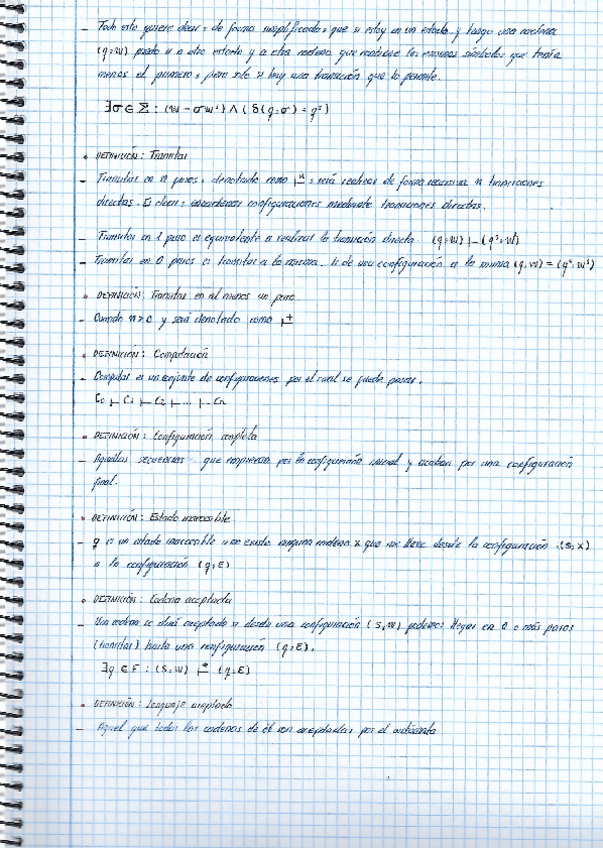 - Todo esto quiere decir, de forma simplificada, que si estoy en un estado y tengo una cadena
(q,w) puedo ir a otro estado y a otra cadena que contiene los mismos símbolos que tenía
menos el primero, pero sólo si hay una transición que lo permite.
∃σ ∈ Σ : (w = σw') ∧ (δ(q,σ) = q')
• DEFINICIÓN: Transitar
- Transitar en n pasos, denotado como ⊢ⁿ, será realizar de forma recursiva n transiciones
directas. Es decir, encadenar configuraciones mediante transiciones directas.
- Transitar en 1 paso es equivalente a realizar la transición directa (q,w) ⊢ (q',w')
- Transitar en 0 pasos es transitar a la misma. Ir de una configuración a la misma (q,w) = (q',w')
• DEFINICIÓN: Transitar en al menos un paso
- Cuando n>0 y será denotado como ⊢⁺
• DEFINICIÓN: Computación
- Computar es un conjunto de configuraciones por el cual se puede pasar.
C₀ ⊢ C₁ ⊢ C₂ ⊢ ... ⊢ Cn
• DEFINICIÓN: Configuración completa
- Aquellas secuencias que empiezan por la configuración inicial y acaban por una configuración
final.
• DEFINICIÓN: Estado inaccesible
- q es un estado inaccesible si no existe ninguna cadena x que me lleve desde la configuración (s,x)
a la configuración (q,ε)
• DEFINICIÓN: Cadena aceptada
- Una cadena se dirá aceptada si desde una configuración (s,w) podemos llegar en 0 o más pasos
(transitar) hasta una configuración (q,ε).
∃q ∈ F : (s,w) ⊢* (q,ε)
• DEFINICIÓN: Lenguaje aceptado
- Aquel que todas las cadenas de él son aceptadas por el autómata